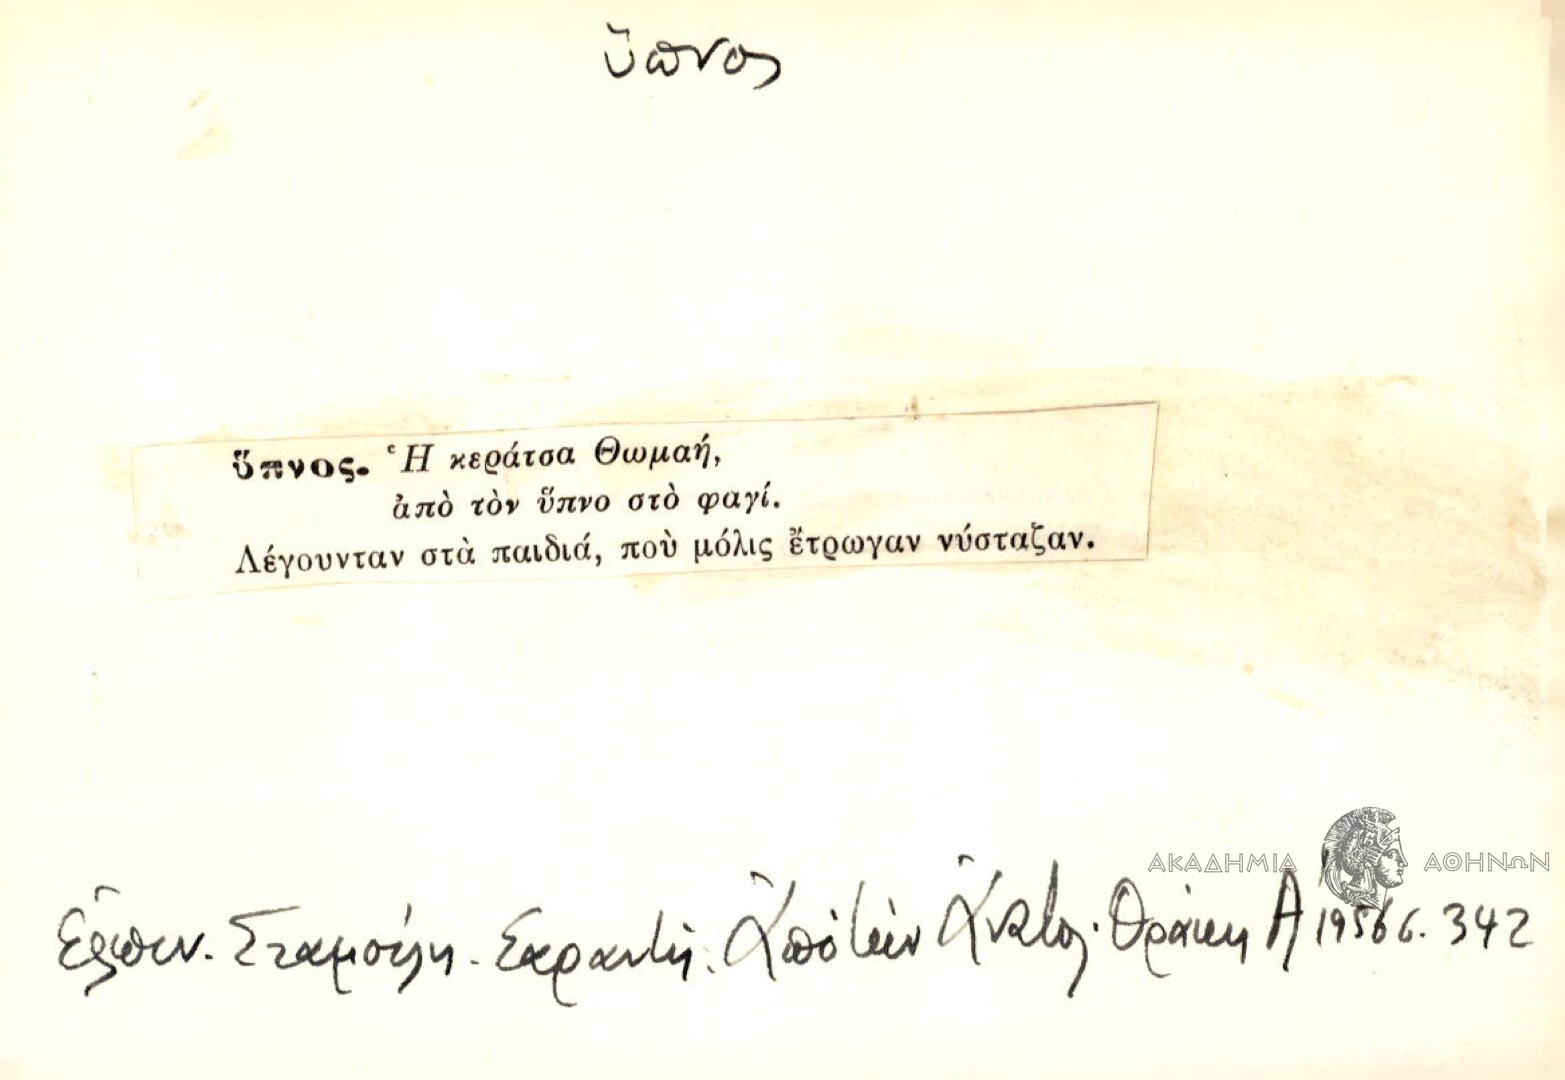 ὕπνος
ὕπνος. Ἡ κεράτσα Θωμαή,
ἀπὸ τὸν ὕπνο στὸ φαγί.
Λέγουνταν στὰ παιδιά, ποὺ μόλις ἔτρωγαν νύσταζαν.
ΑΚΑΔΗΜΙΑ ΑΘΗΝΩΝ
Ἐλπιν. Σταμούλη - Σαραντῆ. Ἀπὸ τὴν Ἀνατολ. Θράκη Α 1956 σ. 342